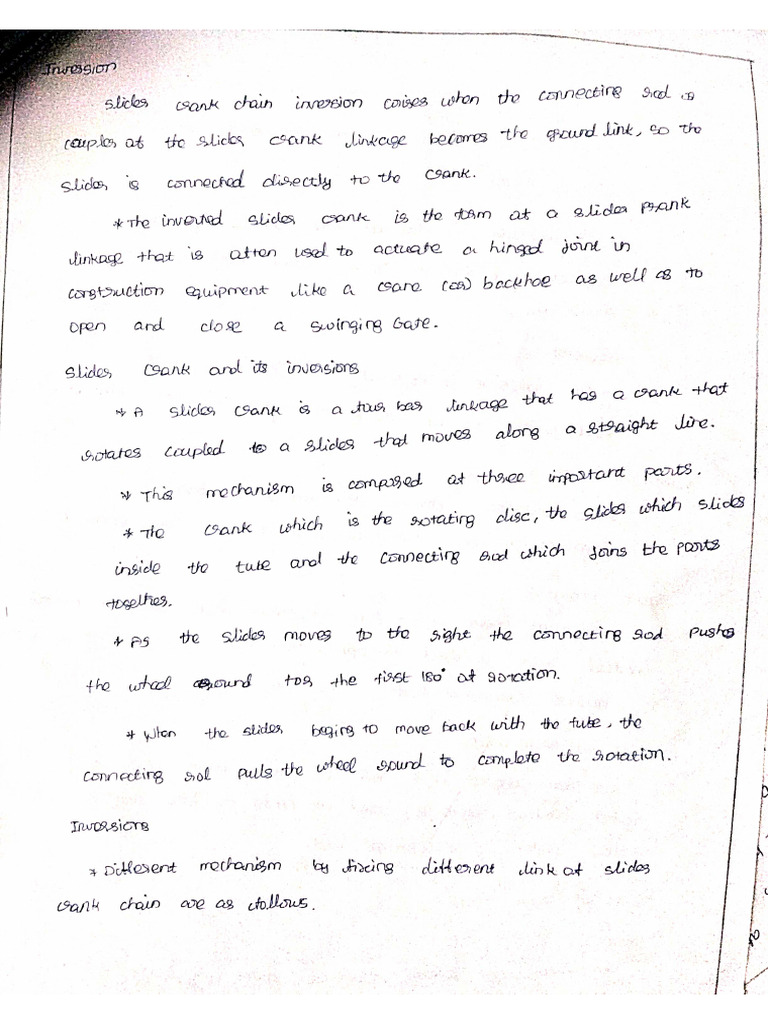 Inversion
Slider crank chain inversion arises when the connecting rod is
coupler of the slider crank linkage becomes the ground link, so the
slider is connected directly to the crank.
* The inverted slider crank is the form of a slider crank
linkage that is often used to actuate a hinged joint in
construction equipment like a crane (or) backhoe as well as to
open and close a swinging Gate.
Slider Crank and its inversions
* A slider crank is a four bar linkage that has a crank that
rotates coupled to a slider that moves along a straight line.
* This mechanism is composed of three important parts.
* The crank which is the rotating disc, the slider which slides
inside the tube and the connecting rod which joins the parts
together.
* As the slider moves to the right the connecting rod pushes
the wheel around for the first 180° of rotation.
* When the slider begins to move back with the tube, the
connecting rod pulls the wheel round to complete the rotation.
Inversions
* Different mechanism by fixing different link of slider
crank chain are as follows.